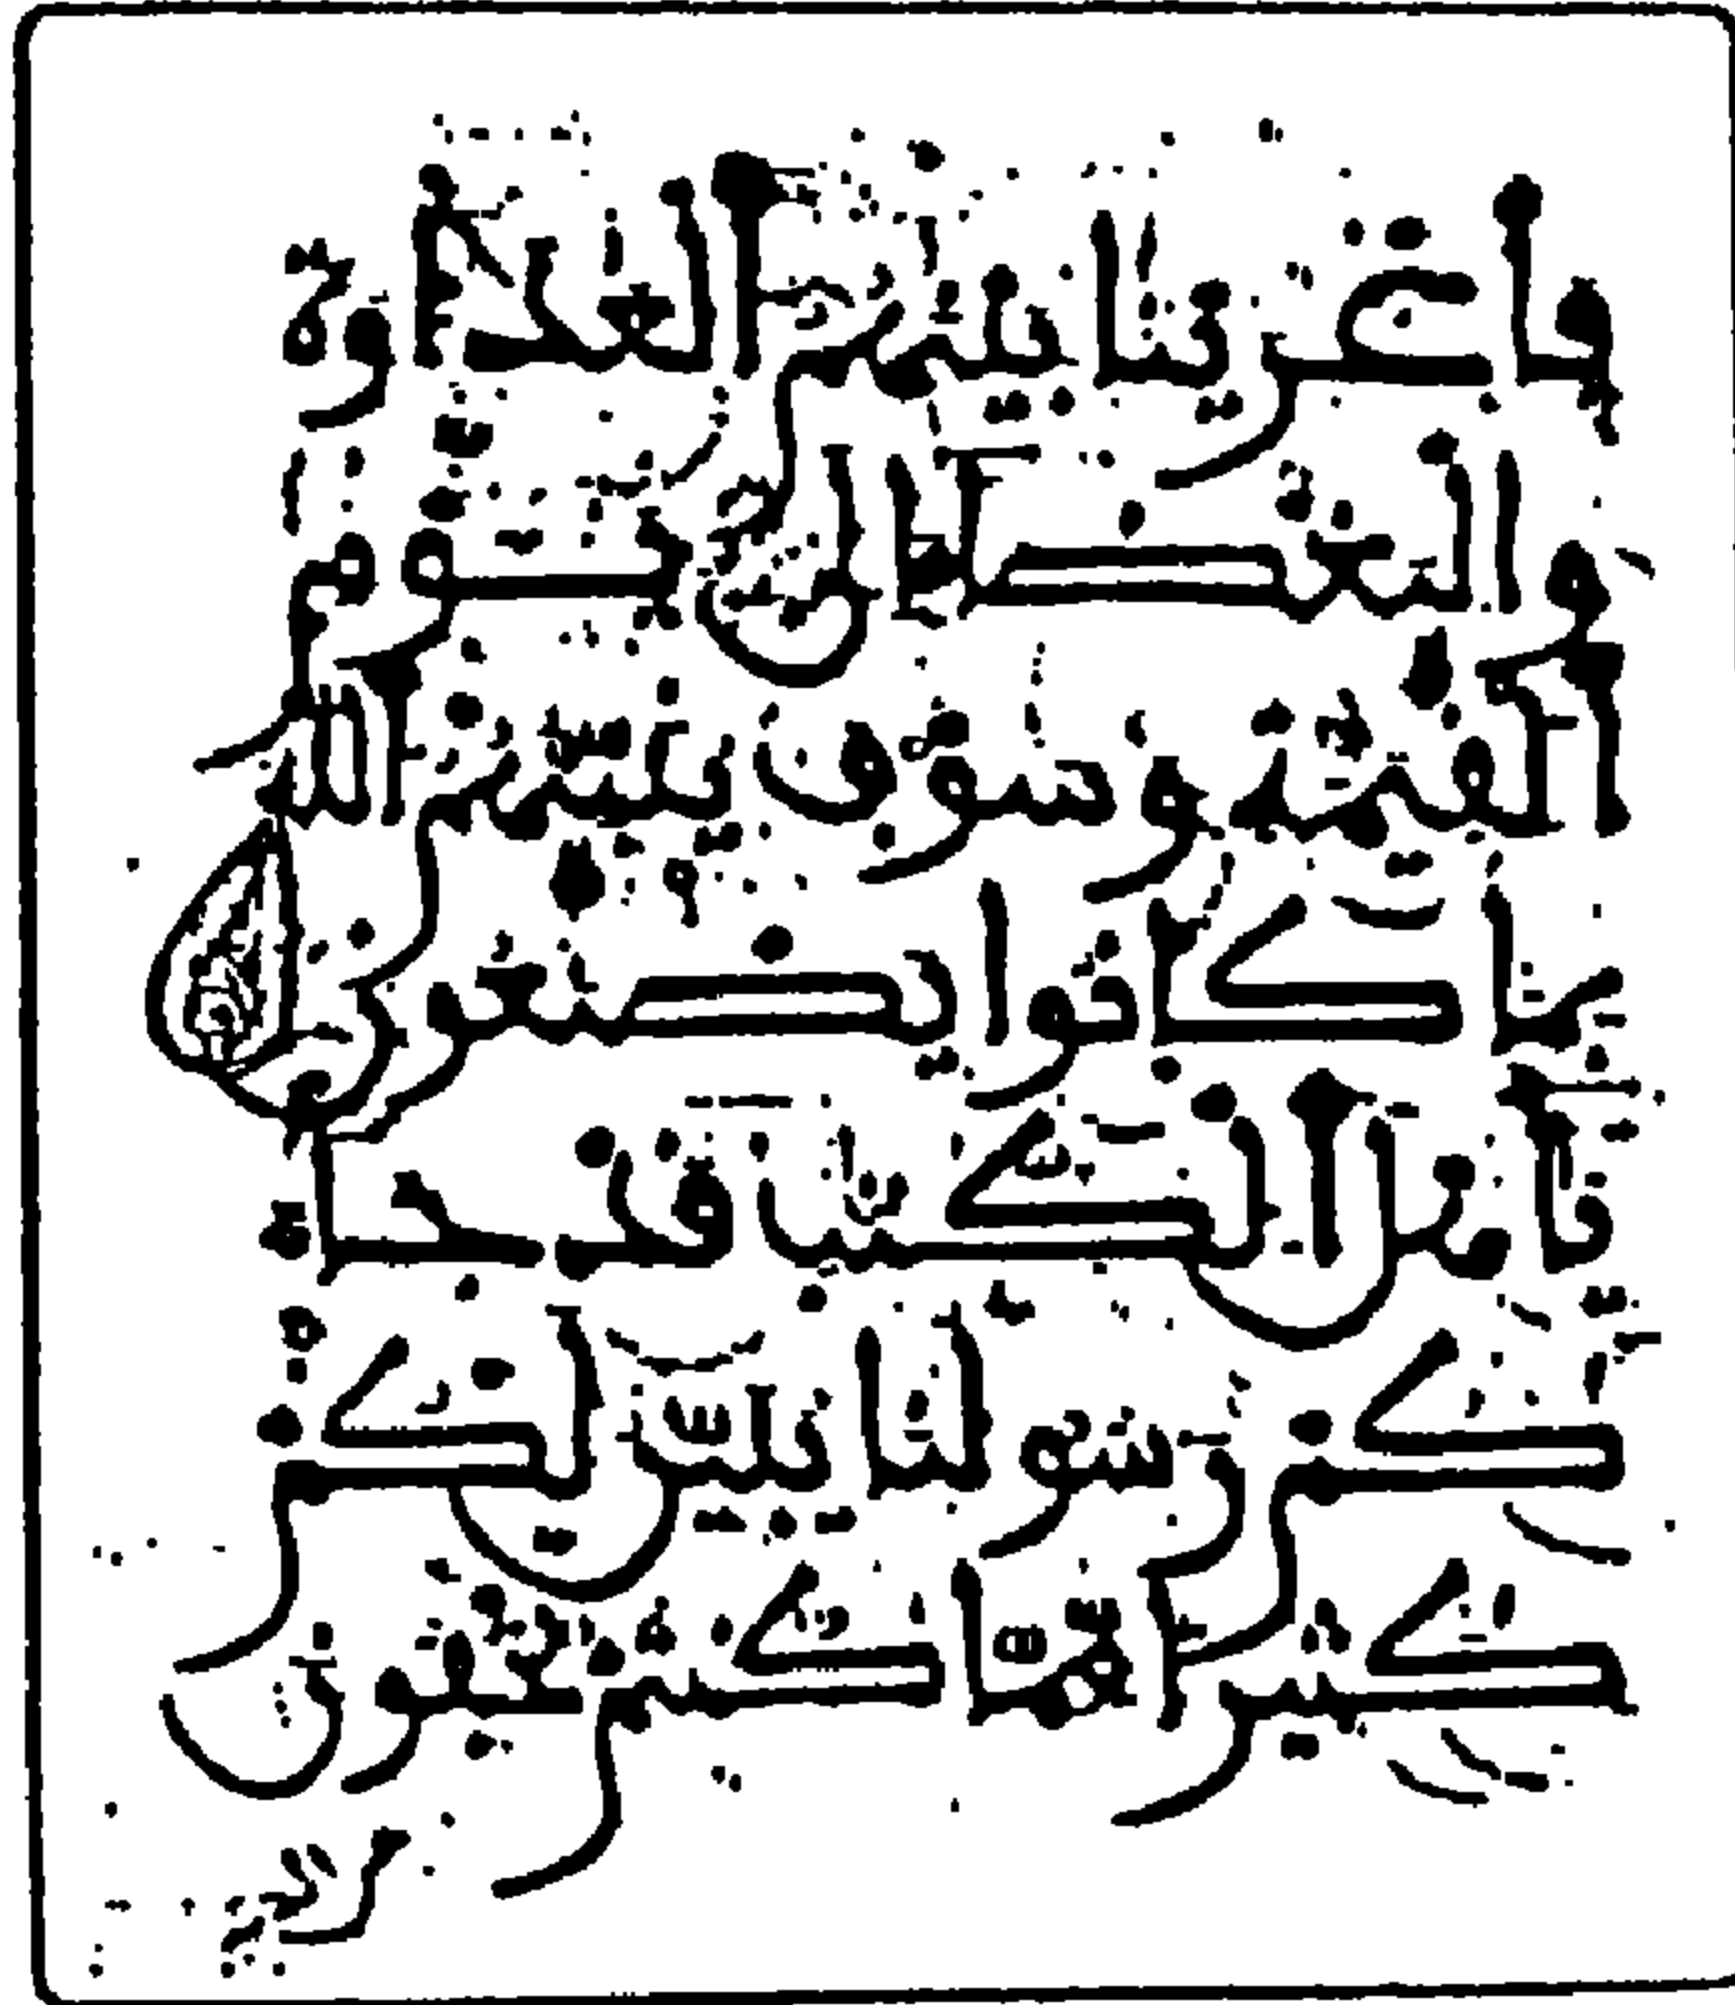 فاغرينا بينهم العداوة
والبغضاء الى يوم
القيمة وسوف ينبئهم الله
بما كانوا يصنعون
ياهل الكتاب قد جا
كم رسولنا يبين لكم
كثيرا مما كنتم تخفون